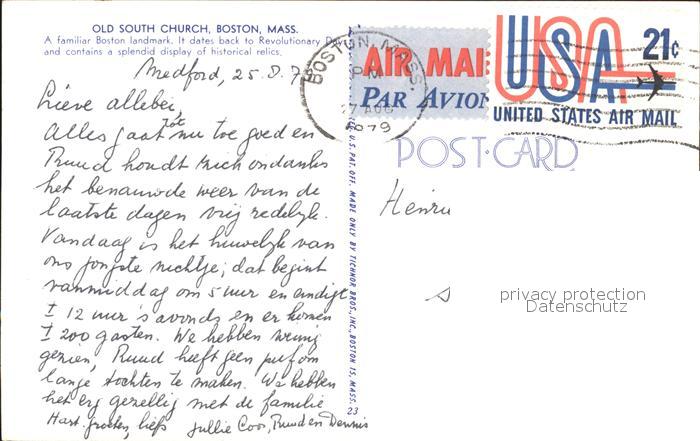 OLD SOUTH CHURCH, BOSTON, MASS.
A familiar Boston landmark. It dates back to Revolutionary
and contains a splendid display of historical relics.
Medford, 25.8.7
Lieve allebei,
Alles gaat tot nu toe goed en
Ruud houdt zich ondanks
het benauwde weer van de
laatste dagen vrij redelijk.
Vandaag is het huwelijk van
ons jongste nichtje; dat begint
vanmiddag om 5 uur en eindigt
± 12 uur 's avonds en er komen
± 200 gasten. We hebben weinig
gezien, Ruud heeft geen puf om
lange tochten te maken. We hebben
het erg gezellig met de familie
Hart. groeten, liefs jullie Coos, Ruud en Dennis
BOSTON, MASS.
PM
27 AUG
1979
AIR MAI
PAR AVION
USA 21c
UNITED STATES AIR MAIL
POST-CARD
U.S. PAT. OFF. MADE ONLY BY TICHNOR BROS., INC., BOSTON 15, MASS.
23
Henru
s
privacy protection
Datenschutz